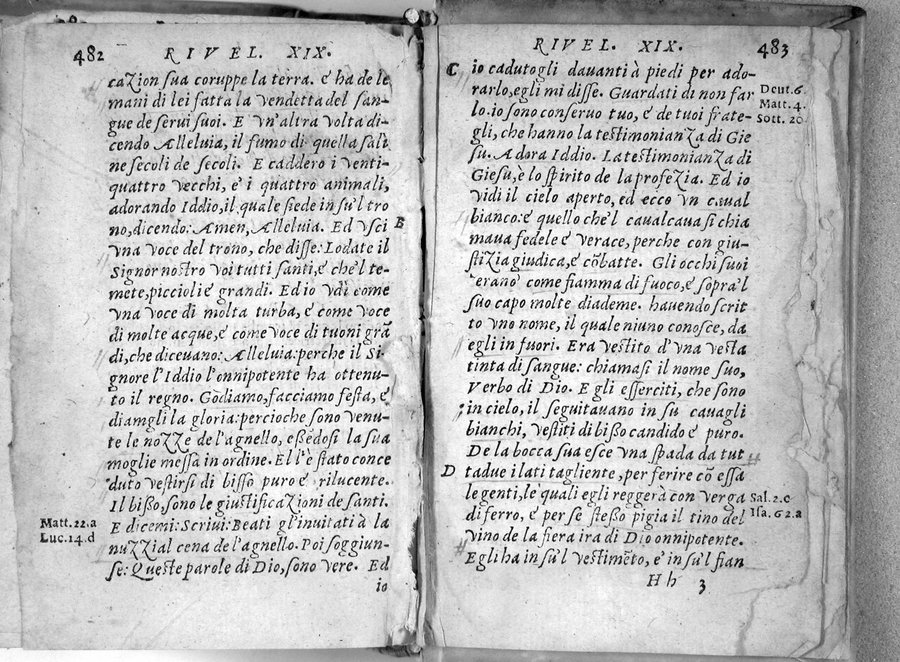 482 RIVEL. XIX.
cazion sua coruppe la terra. e ha de le
mani di lei fatta la vendetta del san-
gue de serui suoi. E vn'altra volta di-
cendo Ælleluia, il fumo di quella salì
ne secoli de secoli. E caddero i venti-
quattro vecchi, e' i quattro animali,
adorando Iddio, il quale siede in su'l tro
no, dicendo: Amen, Ælleluia. Ed vscì B
vna voce del trono, che disse: Lodate il
Signor nostro voi tutti santi, e che'l te-
mete, piccioli e grandi. Ed io vdì come
vna voce di molta turba, e come voce
di molte acque, e come voce di tuoni grã
di, che diceuano: Ælleluia: perche il Si-
gnore l'Iddio l'onnipotente ha ottenu-
to il regno. Godiamo, facciamo festa, e
diamgli la gloria: percioche sono venu-
te le nozze de l'agnello, eßẽdosi la sua
moglie messa in ordine. E l'è stato conce
duto vestirsi di bisso puro e rilucente.
Il bißo, sono le giustificazioni de santi.
Matt.22.a E dicemi: Scriui: Beati gl'inuitati à la
Luc.14.d nuzzial cena de l'agnello. Poi soggiun-
se: Queste parole di Dio, sono vere. Ed
io
RIVEL. XIX. 483
C io cadutogli davanti à piedi per ado-
rarlo, egli mi disse. Guardati di non far Deut.6.
lo. io sono conseruo tuo, e de tuoi frate- Matt.4.
gli, che hanno la testimonianza di Gie Sott.20
su. Adora Iddio. La testimonianza di
Giesu, è lo spirito de la profezia. Ed io
vidi il cielo aperto, ed ecco vn caual
bianco: e quello che'l caualcaua si chia
maua fedele e verace, perche con giu-
stizia giudica, e cõbatte. Gli occhi suoi
erano come fiamma di fuoco, e sopra'l
suo capo molte diademe. hauendo scrit
to vno nome, il quale niuno conosce, da
egli in fuori. Era vestito d'vna vesta
tinta di sangue: chiamasi il nome suo,
Verbo di Dio. E gli esserciti, che sono
in cielo, il seguitauano in su cauagli
bianchi, vestiti di bißo candido e puro.
De la bocca sua esce vna spada da tut
D tadue i lati tagliente, per ferire cõ essa
le genti, le quali egli reggerà con verga Sal.2.c
di ferro, e per se steßo pigia il tino del Isa.62.a
vino de la fiera ira di Dio onnipotente.
Egli ha in su'l vestimẽto, e in su'l fian
Hh 3